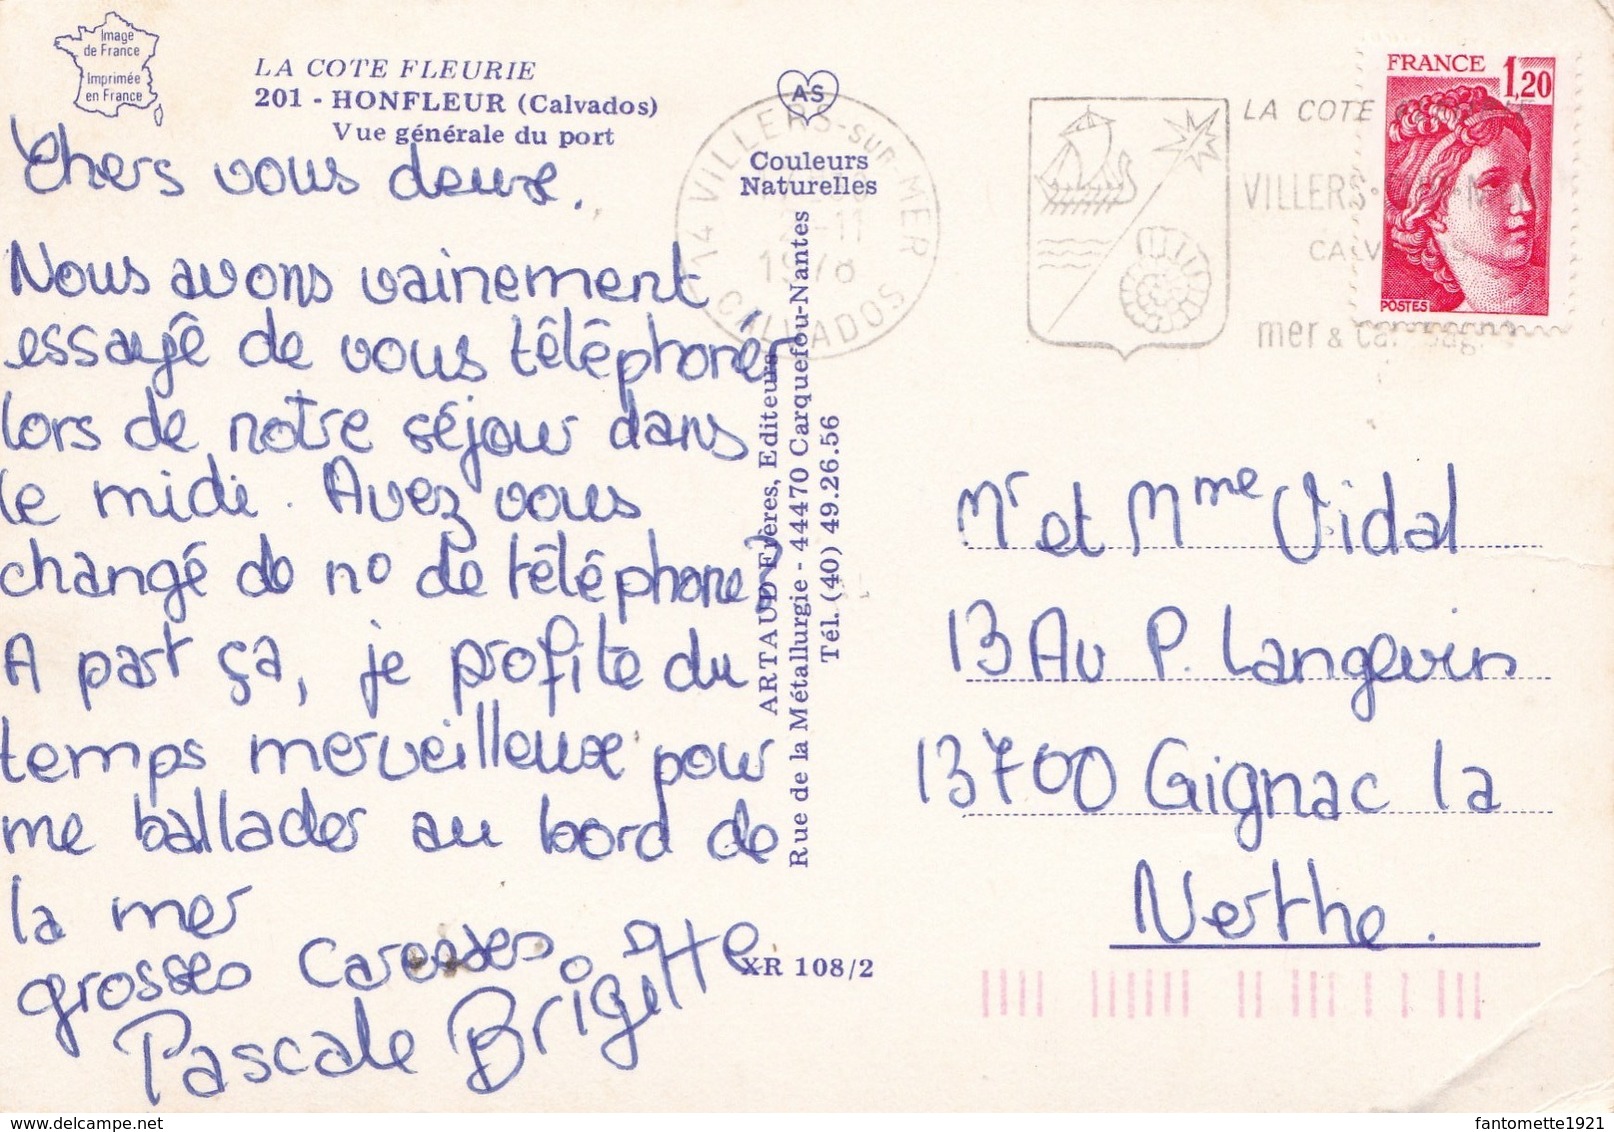 Image
de France
Imprimée
en France
LA COTE FLEURIE
201 - HONFLEUR (Calvados)
Vue générale du port
Chers vous deux.
Nous avons vainement
essayé de vous téléphoner
lors de notre séjour dans
le midi. Avez vous
changé de no de téléphone?
A part ça, je profite du
temps merveilleux pour
me ballader au bord de
la mer
grosses Caresses.
Pascale Brigitte
AS
Couleurs
Naturelles
ARTAUD Frères, Editeurs
Rue de la Métallurgie - 44470 Carquefou-Nantes
Tél. (40) 49.26.56
XR 108/2
14 VILLERS-sur-MER
-11
1978
CALVADOS
LA COTE
VILLERS
CALV
mer & campagne
FRANCE 1,20
POSTES
Mr et Mme Vidal
13 Av P. Langevin
13700 Gignac la
Nerthe.
fantomette1921